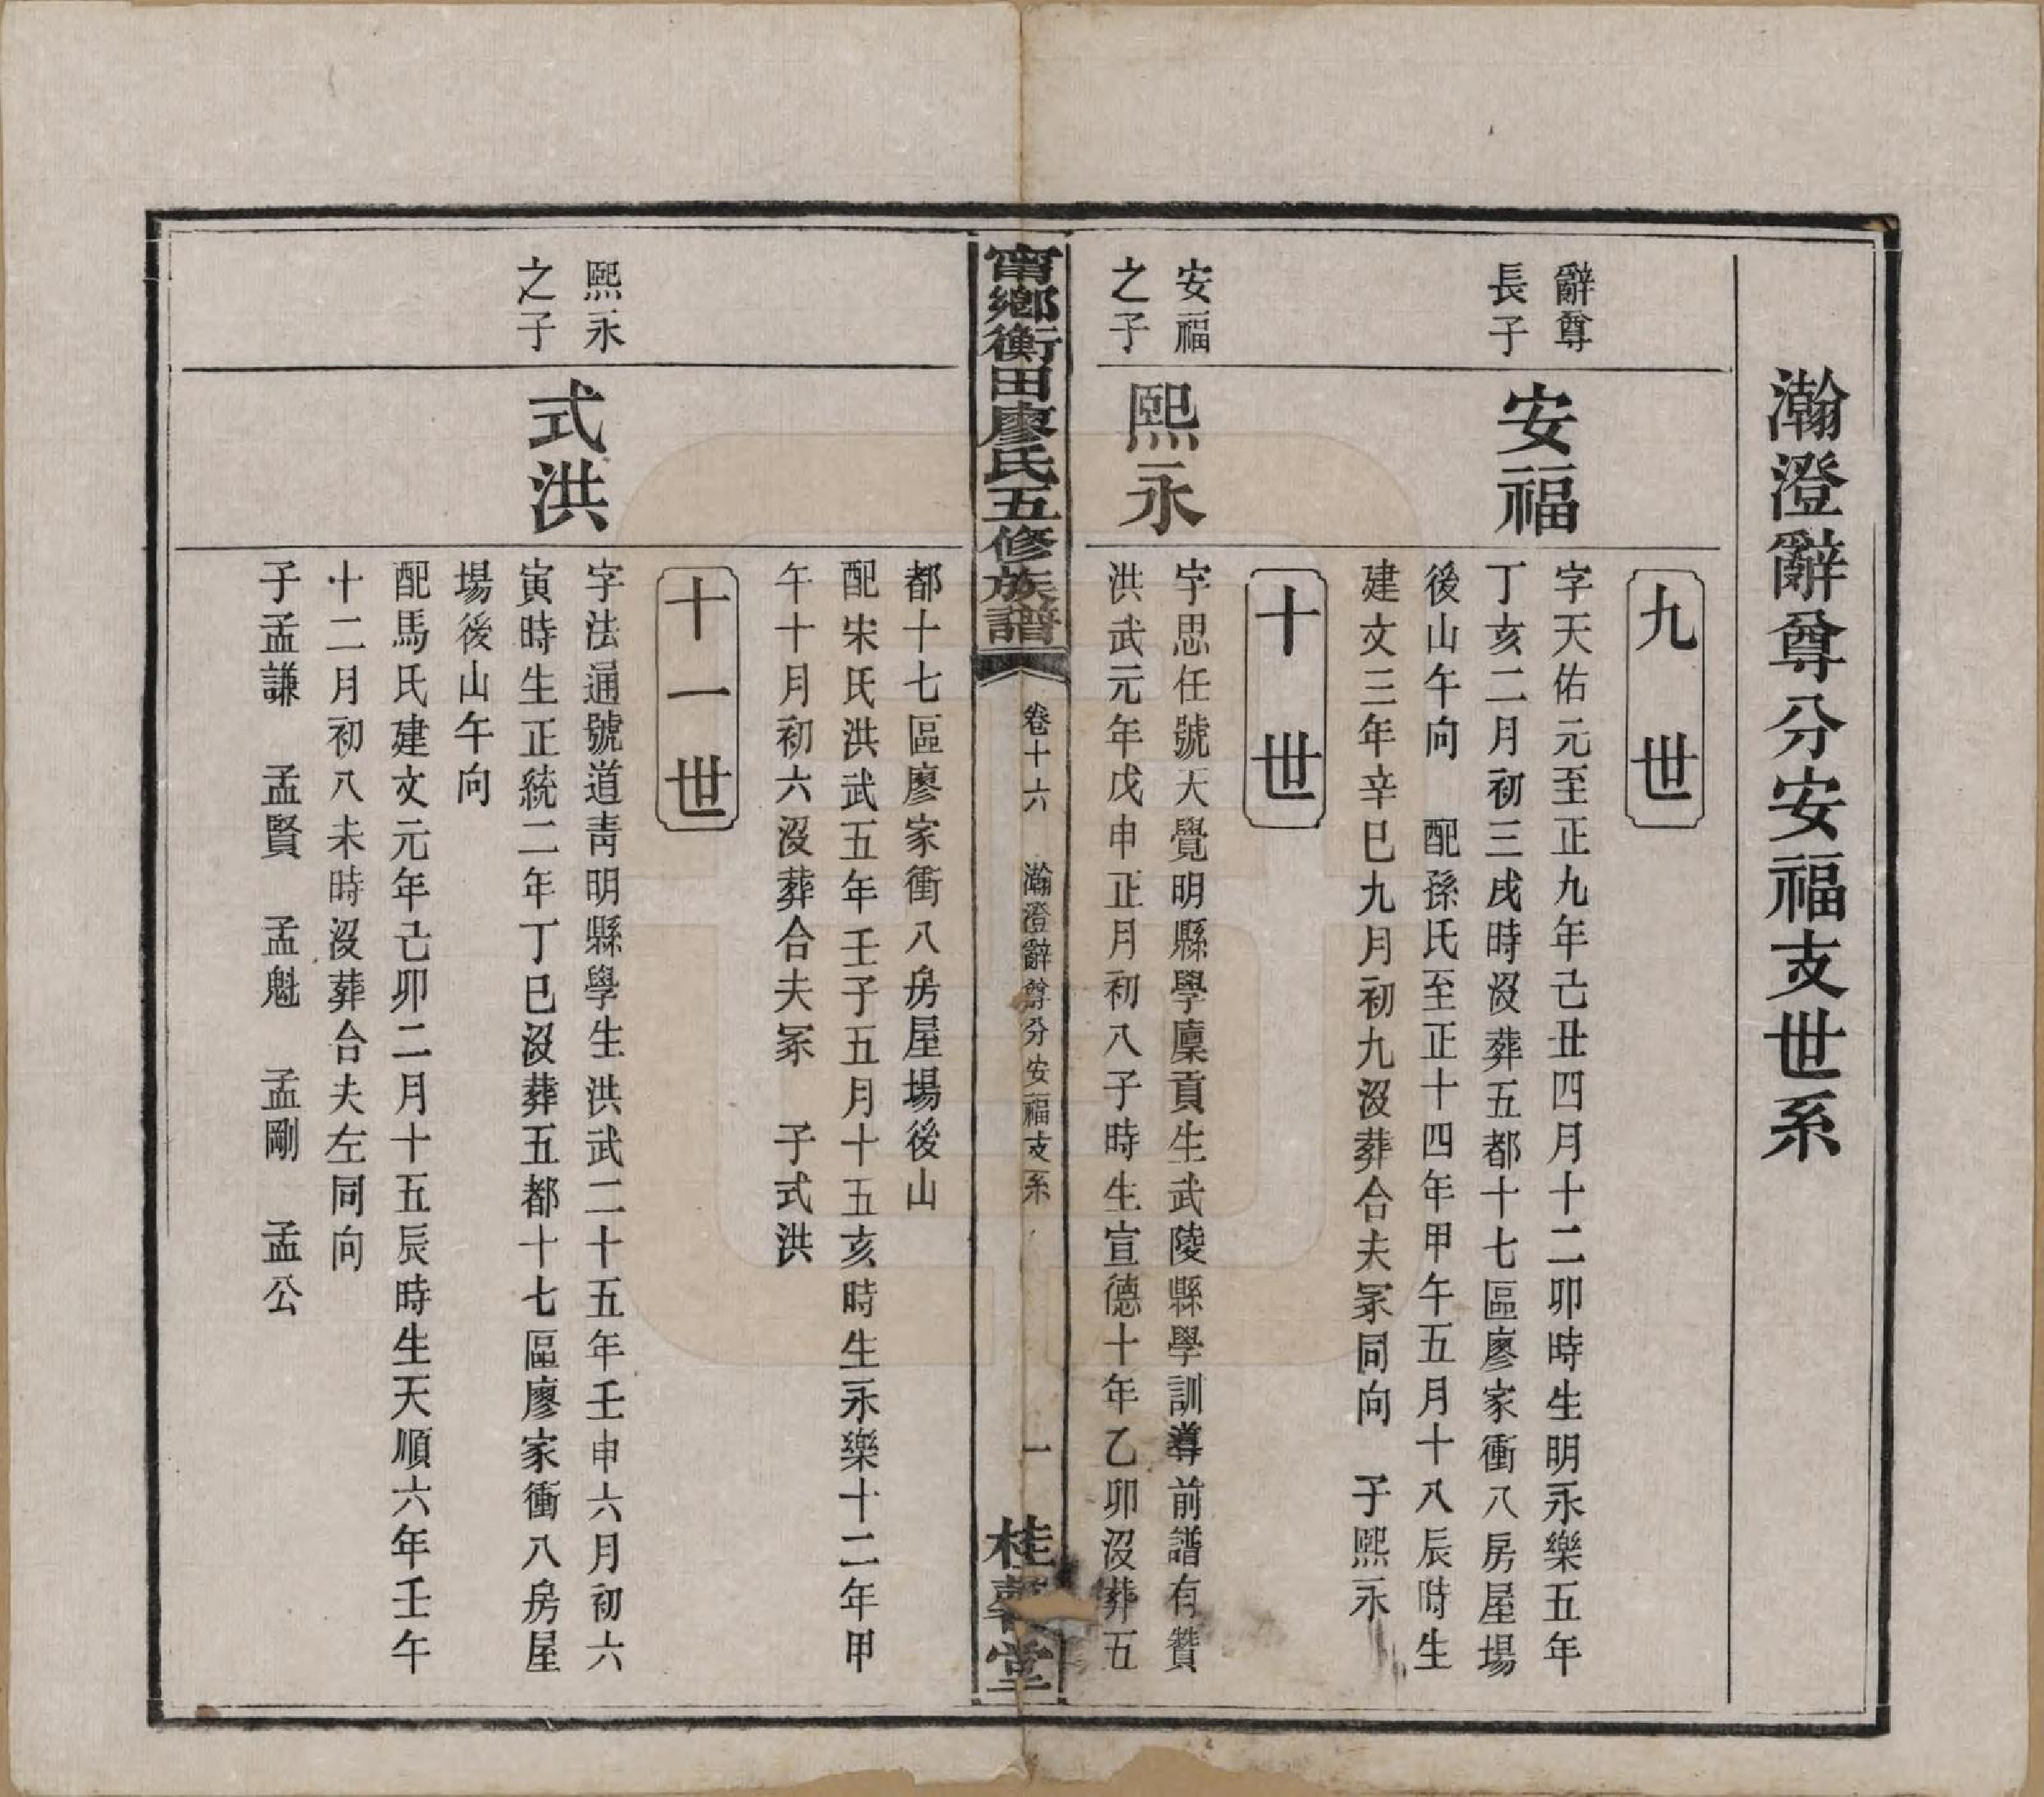 瀚澄辭尊分安福支世系
九世
辭尊
長子
安福
字天佑元至正九年己丑四月十二卯時生明永樂五年
丁亥二月初三戌時沒葬五都十七區廖家衝八房屋場
後山午向　配孫氏至正十四年甲午五月十八辰時生
建文三年辛巳九月初九沒葬合夫冢同向　子熙永
十世
安福
之子
熙永
字思任號天覺明縣學廩貢生武陵縣學訓導前譜有贊
洪武元年戊申正月初八子時生宣德十年乙卯沒葬五
甯鄉衡田廖氏五修族譜
卷十六　瀚澄辭尊分安福支系
一
桂馨堂
都十七區廖家衝八房屋場後山
配宋氏洪武五年壬子五月十五亥時生永樂十二年甲
午十月初六沒葬合夫冢　子式洪
十一世
熙永
之子
式洪
字法通號道靑明縣學生洪武二十五年壬申六月初六
寅時生正統二年丁巳沒葬五都十七區廖家衝八房屋
場後山午向
配馬氏建文元年己卯二月十五辰時生天順六年壬午
十二月初八未時沒葬合夫左同向
子孟謙　孟賢　孟魁　孟剛　孟公